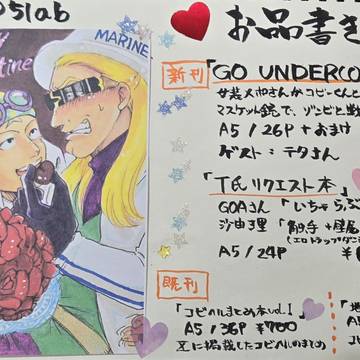 51ab
お品書き
MARINE
tine
新刊
「GO UNDERCO
女装メポさんがコビーくんと
マスケット銃で、ゾンビと戦
A5 / 26P + おまけ
ゲスト:テタさん
「T氏リクエスト本」
GOAさん 「いちゃらぶ
沙由多理 「触手+壁尻
(エロトラップダン
A5 / 24P ¥
既刊
「コビヘルまとめ本vol.1」
A5 / 36P ¥700
に掲載したコビヘルのまとめ